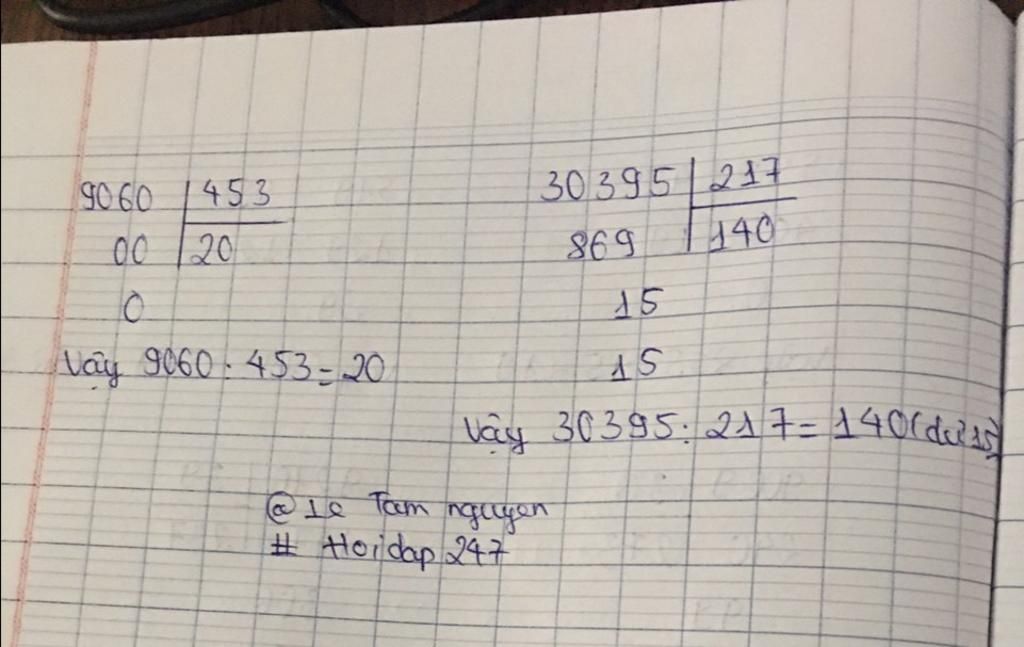 9060 | 453
00 | 20
0
Vậy 9060 : 453 = 20
30395 | 217
869 | 140
15
15
Vậy 30395 : 217 = 140 (dư 15)
@ Le Tam nguyen
# Hoidap 247